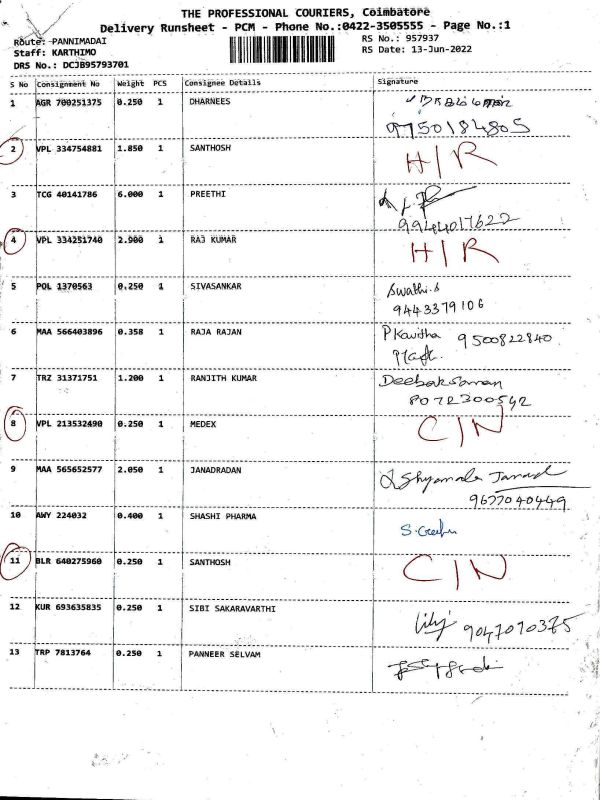 THE PROFESSIONAL COURIERS, Coimbatore
Delivery Runsheet - PCM - Phone No.:0422-3505555 - Page No.:1
Route: PANNIMADAI
RS No.: 957937
Staff: KARTHIMO
RS Date: 13-Jun-2022
DRS No.: DCJB95793701
S No Consignment No Weight PCS Consignee Details Signature
1 AGR 700251375 0.250 1 DHARNEES
9750184805
2 VPL 334754881 1.850 1 SANTHOSH H/R
3 TCG 40141786 6.000 1 PREETHI
9944017622
4 VPL 334251740 2.900 1 RAJ KUMAR H/R
5 POL 1370563 0.250 1 SIVASANKAR Swathi.S
9443379106
6 MAA 566403896 0.358 1 RAJA RAJAN P Kavitha 9500822840
7 TRZ 31371751 1.200 1 RANJITH KUMAR
8072300542
8 VPL 213532490 0.250 1 MEDEX C/N
9 MAA 565652577 2.050 1 JANADRADAN Shyamala
9677040449
10 AWY 224032 0.400 1 SHASHI PHARMA
11 BLR 640275960 0.250 1 SANTHOSH C/N
12 KUR 693635835 0.250 1 SIBI SAKARAVARTHI 9047070375
13 TRP 7813764 0.250 1 PANNEER SELVAM